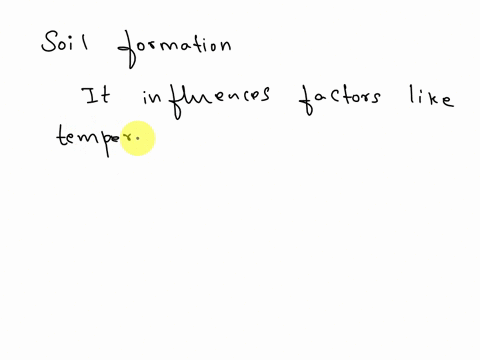 Soil formation
It influences factors like
temper.